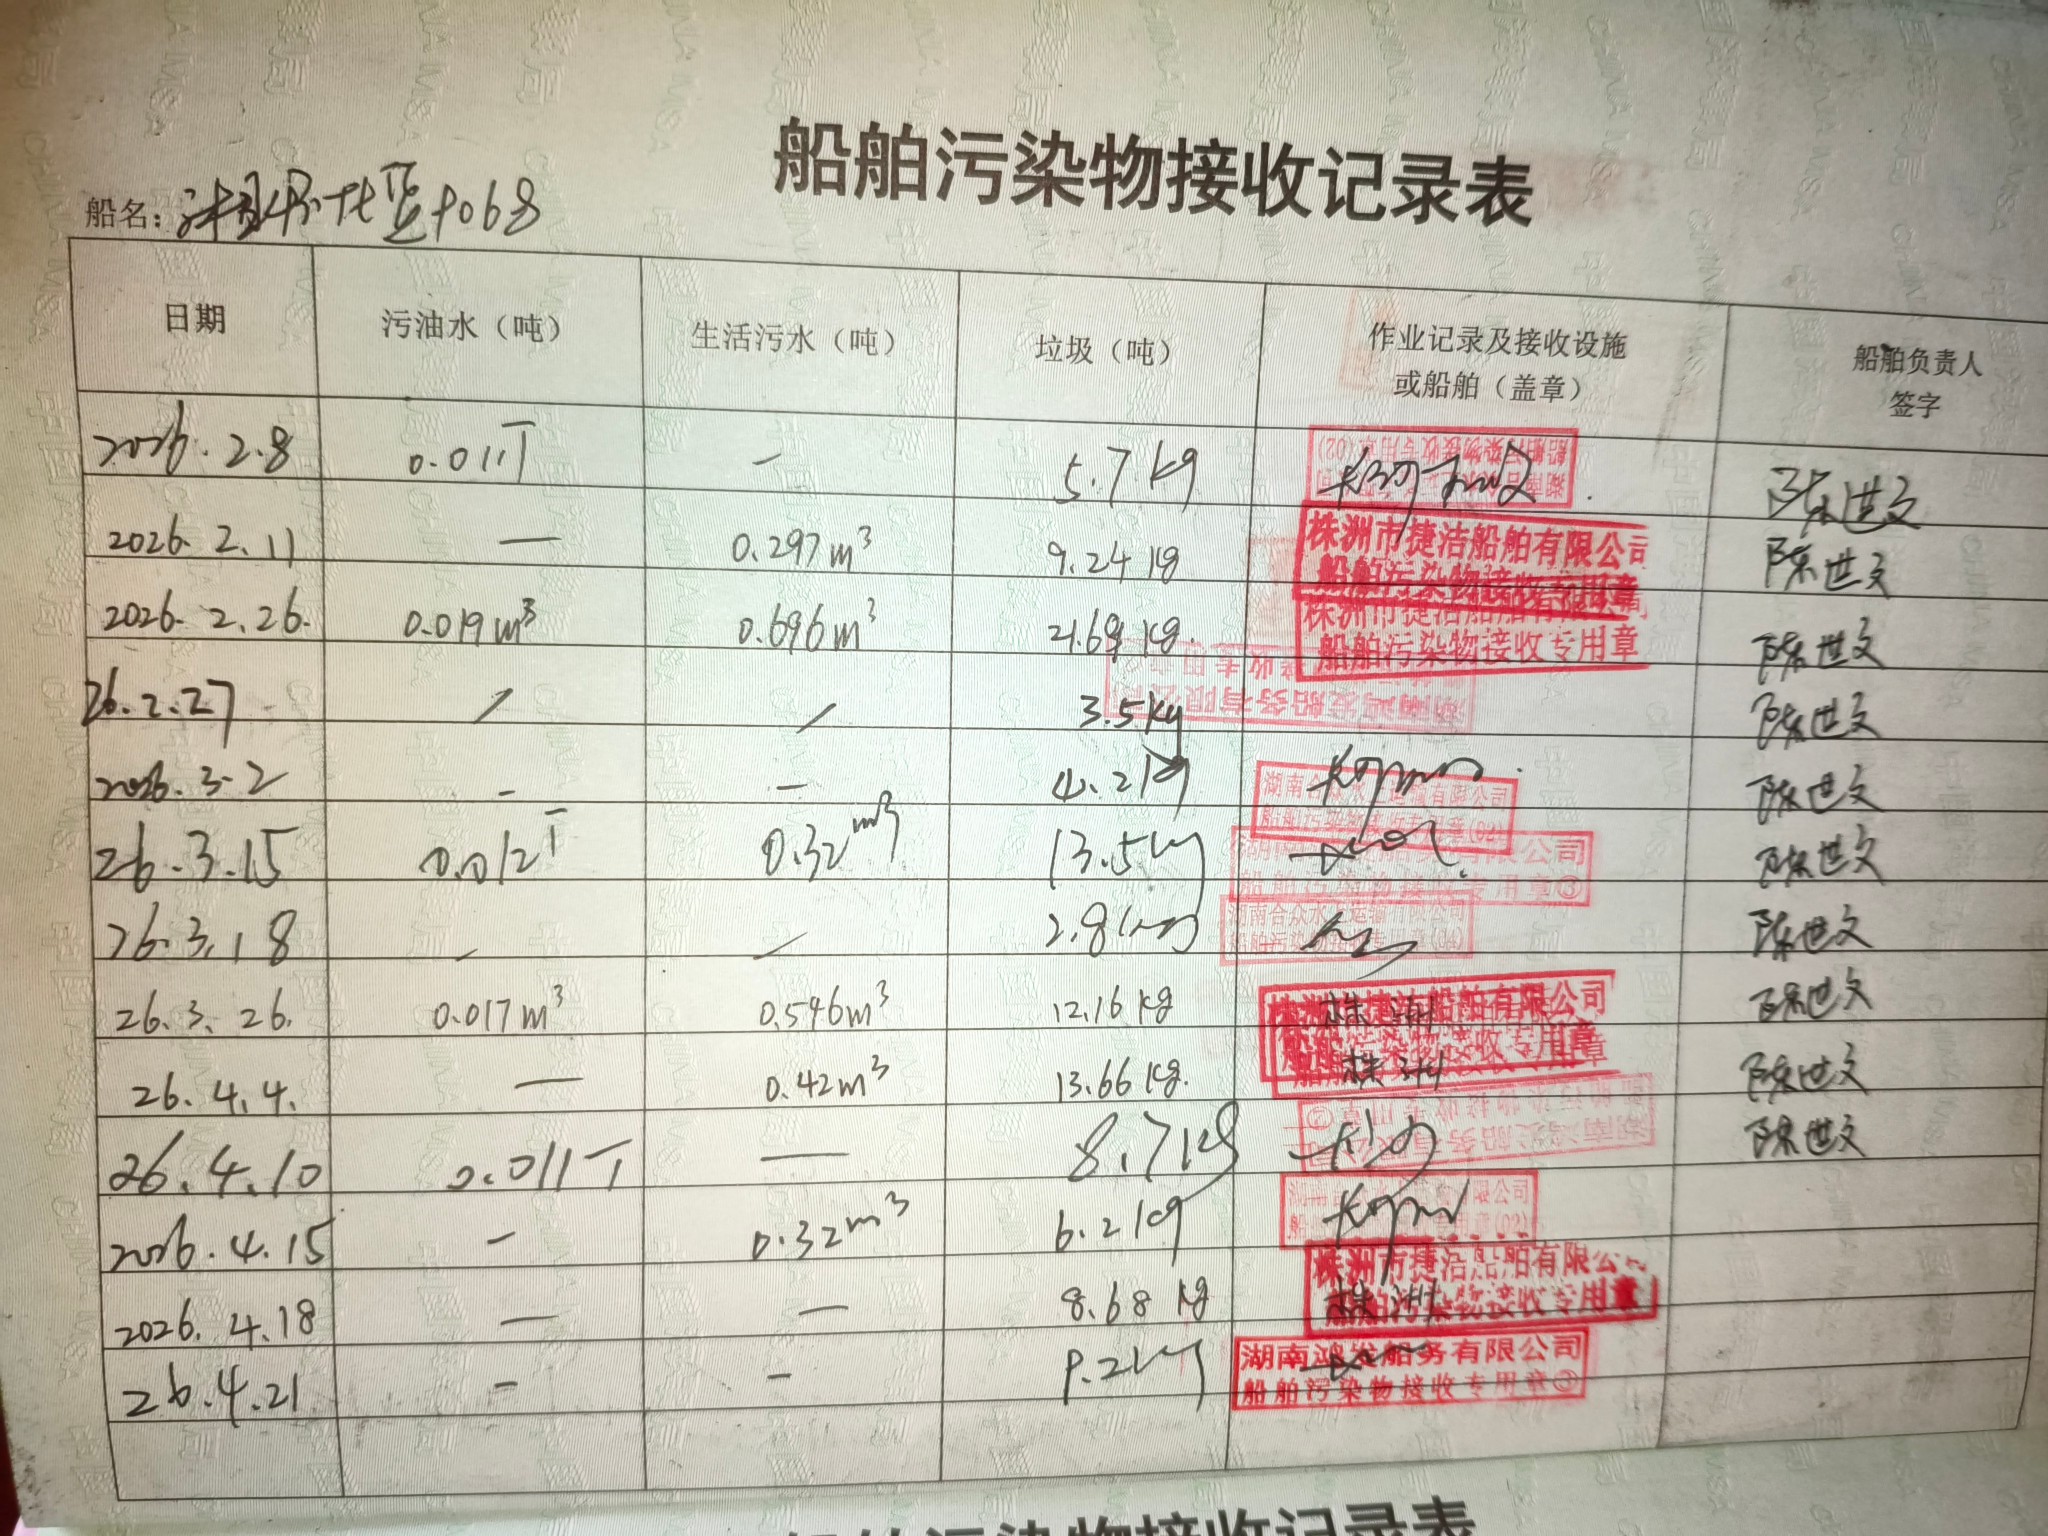 船舶污染物接收记录表
船名： 1068
日期 污油水（吨） 生活污水（吨） 垃圾（吨） 作业记录及接收设施或船舶（盖章） 船舶负责人签字
2026.2.8 0.011T — 5.7kg 陈世文
2026.2.11 — 0.297m³ 9.24kg 株洲市捷洁船舶有限公司 船舶污染物接收专用章 陈世文
2026.2.26. 0.019m³ 0.696m³ 21.69kg. 株洲市捷洁船舶有限公司 船舶污染物接收专用章 陈世文
26.2.27 / / 3.5kg 湖南鸿发船务有限公司 陈世文
2026.3.2 - — 4.2kg 湖南合众 有限公司 陈世文
26.3.15 0.012T 0.32m³ 13.5kg 有限公司 船舶污染物接收专用章③ 陈世文
26.3.18 / / 2.8kg 湖南合众水 运输有限公司 陈世文
26.3.26. 0.017m³ 0.546m³ 12.16kg 株洲 株洲市捷洁船舶有限公司 陈世文
26.4.4. — 0.42m³ 13.66kg. 株洲 接收专用章 陈世文
26.4.10 0.011T — 8.7kg 陈世文
2026.4.15 - 0.32m³ 6.2kg
2026.4.18 — — 8.68kg 株洲 株洲市捷洁船舶有限公司 船舶污染物接收专用章
26.4.21 - - 9.2kg 湖南鸿发船务有限公司 船舶污染物接收专用章③
船舶污染物接收记录表